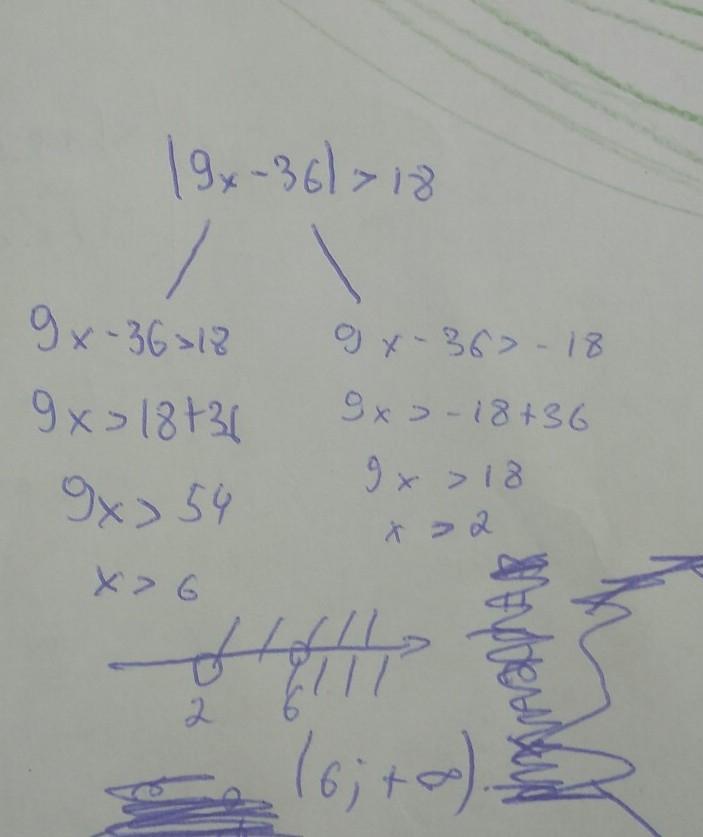 |9x-36|>18
9x-36>18
9x>18+36
9x>54
x>6
9x-36>-18
9x>-18+36
9x>18
x>2
2 6
(6;+∞)